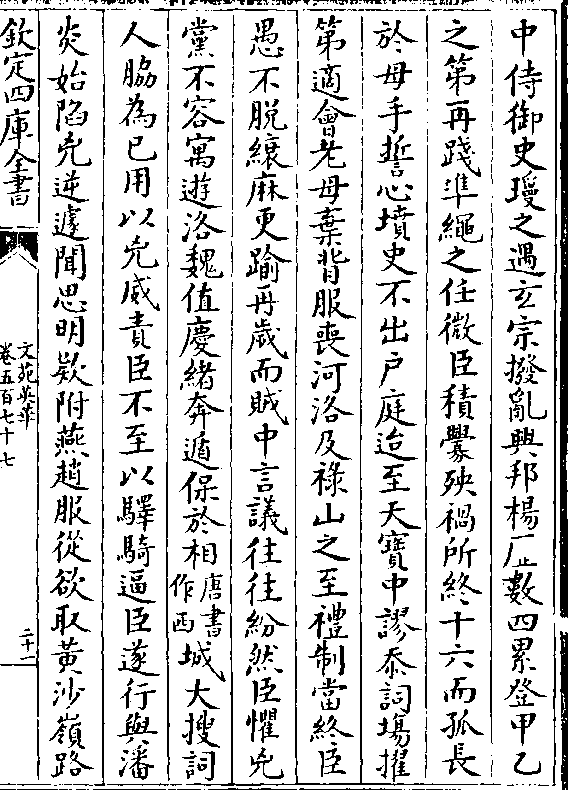 中侍御史瓊之遇玄宗撥亂興邦楊數四累登甲乙
之第再踐準繩之任微臣積釁殃禍所終十六而孤長
於母手誓心墳史不出戶庭迨至天寶中謬忝詞場擢
第適會老母棄背服喪河洛及祿山之至禮制當終臣
愚不脫縗麻更踰再歲而賊中言議往往紛然臣懼兇
黨不容寓遊洛魏值慶緒奔遁保於相唐書作西城大搜詞
人脇為已用以兇威責臣不至以驛騎逼臣遂行與潘
炎始陷兇逆遽聞思明欵附燕趙服從欲取黃沙嶺路
欽定四庫全書
文苑英華
卷五百七十七
二十一